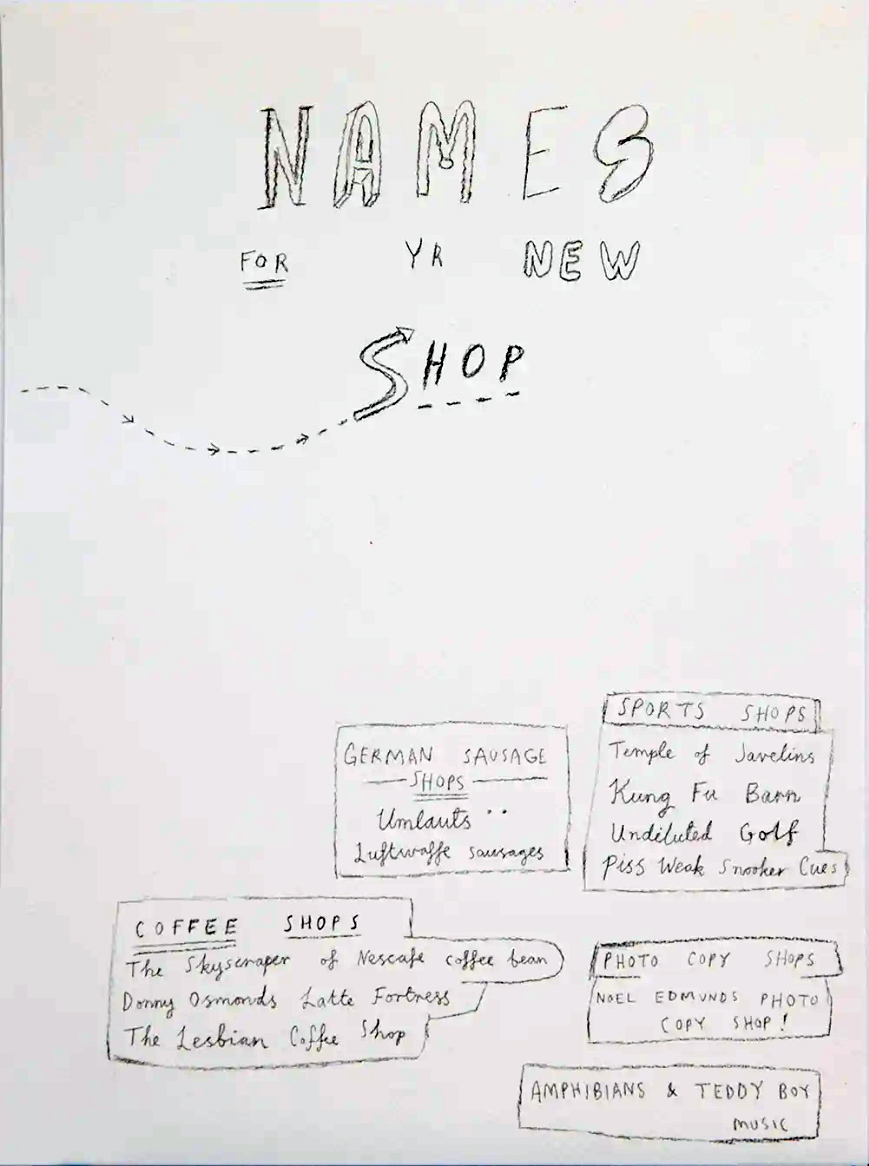 NAMES
FOR YR NEW
SHOP
GERMAN SAUSAGE
SHOPS
Umlauts ¨
Luftwaffe sausages
SPORTS SHOPS
Temple of Javelins
Kung Fu Barn
Undiluted Golf
Piss Weak Snooker Cues
COFFEE SHOPS
The Skyscraper of Nescafe coffee bean
Donny Osmonds Latte Fortress
The Lesbian Coffee Shop
PHOTO COPY SHOPS
NOEL EDMUNDS PHOTO
COPY SHOP!
AMPHIBIANS & TEDDY BOY
MUSIC